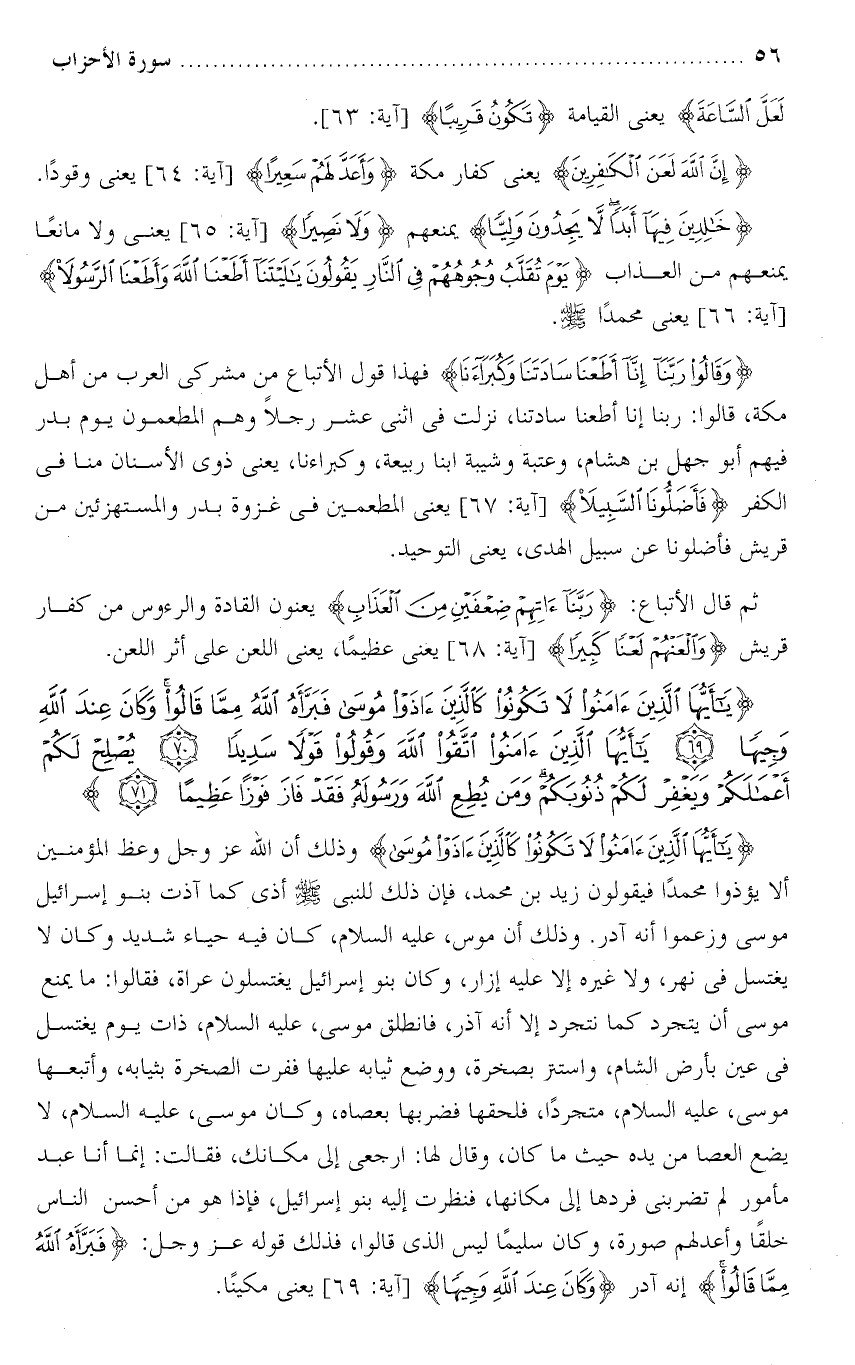 ٥٦ ........................................................................ سورة الأحزاب
لَعَلَّ ٱلسَّاعَةَ﴾ يعنى القيامة ﴿تَكُونُ قَرِيبًا﴾ [آية: ٦٣].
﴿إِنَّ ٱللَّهَ لَعَنَ ٱلْكَٰفِرِينَ﴾ يعنى كفار مكة ﴿وَأَعَدَّ لَهُمْ سَعِيرًا﴾ [آية: ٦٤] يعنى وقودًا.
﴿خَٰلِدِينَ فِيهَآ أَبَدًاۖ لَّا يَجِدُونَ وَلِيًّا﴾ يمنعهم ﴿وَلَا نَصِيرًا﴾ [آية: ٦٥] يعنى ولا مانعًا
يمنعهم من العذاب ﴿يَوْمَ تُقَلَّبُ وُجُوهُهُمْ فِى ٱلنَّارِ يَقُولُونَ يَٰلَيْتَنَآ أَطَعْنَا ٱللَّهَ وَأَطَعْنَا ٱلرَّسُولَا۠﴾
[آية: ٦٦] يعنى محمدًا ﷺ.
﴿وَقَالُوا۟ رَبَّنَآ إِنَّآ أَطَعْنَا سَادَتَنَا وَكُبَرَآءَنَا﴾ فهذا قول الأتباع من مشركى العرب من أهل
مكة، قالوا: ربنا إنا أطعنا سادتنا، نزلت فى اثنى عشر رجلاً وهم المطعمون يوم بدر
فيهم أبو جهل بن هشام، وعتبة وشيبة ابنا ربيعة، وكبراءنا، يعنى ذوى الأسنان منا فى
الكفر ﴿فَأَضَلُّونَا ٱلسَّبِيلَا۠﴾ [آية: ٦٧] يعنى المطعمين فى غزوة بدر والمستهزئين من
قريش فأضلونا عن سبيل الهدى، يعنى التوحيد.
ثم قال الأتباع: ﴿رَبَّنَآ ءَاتِهِمْ ضِعْفَيْنِ مِنَ ٱلْعَذَابِ﴾ يعنون القادة والرءوس من كفار
قريش ﴿وَٱلْعَنْهُمْ لَعْنًا كَبِيرًا﴾ [آية: ٦٨] يعنى عظيمًا، يعنى اللعن على أثر اللعن.
﴿يَٰٓأَيُّهَا ٱلَّذِينَ ءَامَنُوا۟ لَا تَكُونُوا۟ كَٱلَّذِينَ ءَاذَوْا۟ مُوسَىٰ فَبَرَّأَهُ ٱللَّهُ مِمَّا قَالُوا۟ۚ وَكَانَ عِندَ ٱللَّهِ
وَجِيهًا ٦٩ يَٰٓأَيُّهَا ٱلَّذِينَ ءَامَنُوا۟ ٱتَّقُوا۟ ٱللَّهَ وَقُولُوا۟ قَوْلًا سَدِيدًا ٧٠ يُصْلِحْ لَكُمْ
أَعْمَٰلَكُمْ وَيَغْفِرْ لَكُمْ ذُنُوبَكُمْۗ وَمَن يُطِعِ ٱللَّهَ وَرَسُولَهُۥ فَقَدْ فَازَ فَوْزًا عَظِيمًا ٧١ ﴾
﴿يَٰٓأَيُّهَا ٱلَّذِينَ ءَامَنُوا۟ لَا تَكُونُوا۟ كَٱلَّذِينَ ءَاذَوْا۟ مُوسَىٰ﴾ وذلك أن الله عز وجل وعظ المؤمنين
ألا يؤذوا محمدًا فيقولون زيد بن محمد، فإن ذلك للنبى ﷺ أذى كما آذت بنو إسرائيل
موسى وزعموا أنه آدر. وذلك أن موس، عليه السلام، كان فيه حياء شديد وكان لا
يغتسل فى نهر، ولا غيره إلا عليه إزار، وكان بنو إسرائيل يغتسلون عراة، فقالوا: ما يمنع
موسى أن يتجرد كما نتجرد إلا أنه آذر، فانطلق موسى، عليه السلام، ذات يوم يغتسل
فى عين بأرض الشام، واستتر بصخرة، ووضع ثيابه عليها ففرت الصخرة بثيابه، وأتبعها
موسى، عليه السلام، متجردًا، فلحقها فضربها بعصاه، وكان موسى، عليه السلام، لا
يضع العصا من يده حيث ما كان، وقال لها: ارجعى إلى مكانك، فقالت: إنما أنا عبد
مأمور لم تضربنى فردها إلى مكانها، فنظرت إليه بنو إسرائيل، فإذا هو من أحسن الناس
خلقًا وأعدلهم صورة، وكان سليمًا ليس الذى قالوا، فذلك قوله عز وجل: ﴿فَبَرَّأَهُ ٱللَّهُ
مِمَّا قَالُوا۟ۚ﴾ إنه آدر ﴿وَكَانَ عِندَ ٱللَّهِ وَجِيهًا﴾ [آية: ٦٩] يعنى مكينًا.